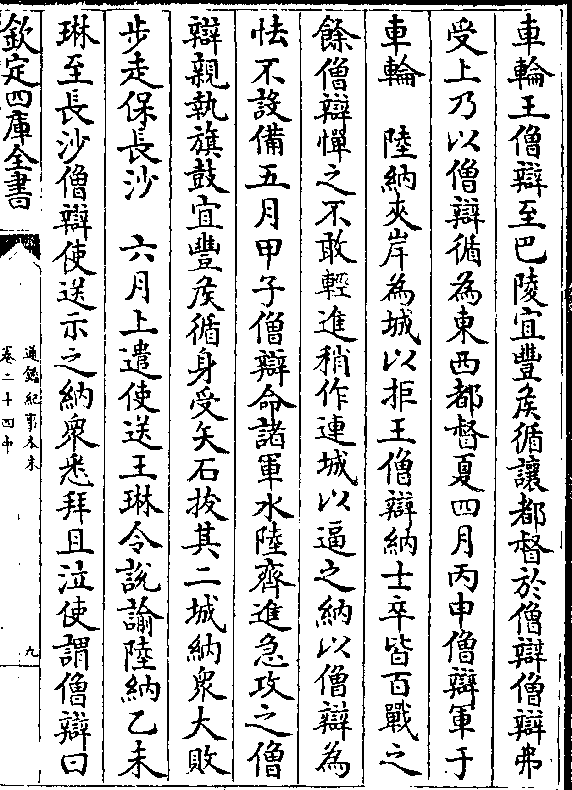 車輪王僧辯至巴陵宜豐侯循讓都督於僧辯僧辯弗
受上乃以僧辯循為東西都督夏四月丙申僧辯軍于
車輪　陸納夾岸為城以拒王僧辯納士卒皆百戰之
餘僧辯憚之不敢輕進稍作連城以逼之納以僧辯為
怯不設備五月甲子僧辯命諸軍水陸齊進急攻之僧
辯親執旗鼓宜豐侯循身受矢石拔其二城納衆大敗
步走保長沙　六月上遣使送王琳令說諭陸納乙未
琳至長沙僧辯使送示之納衆悉拜且泣使謂僧辯曰
欽定四庫全書
通鑑紀事本末
卷二十四中
九